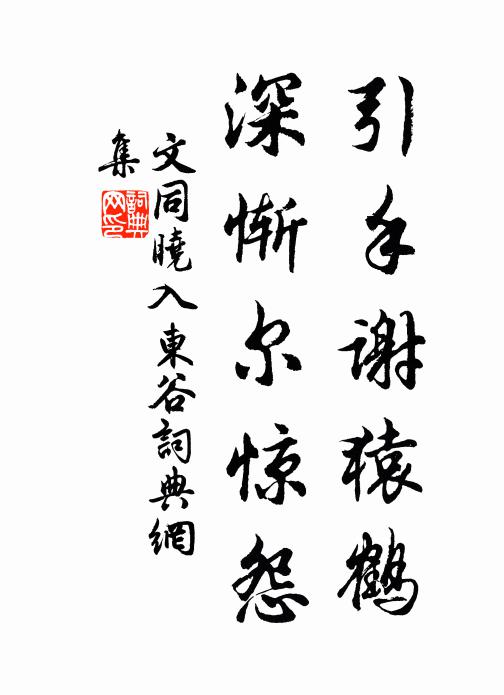 引手谢猿鹤
深惭尔惊怨
文同曉入東谷詞典網
集
詞典
网印